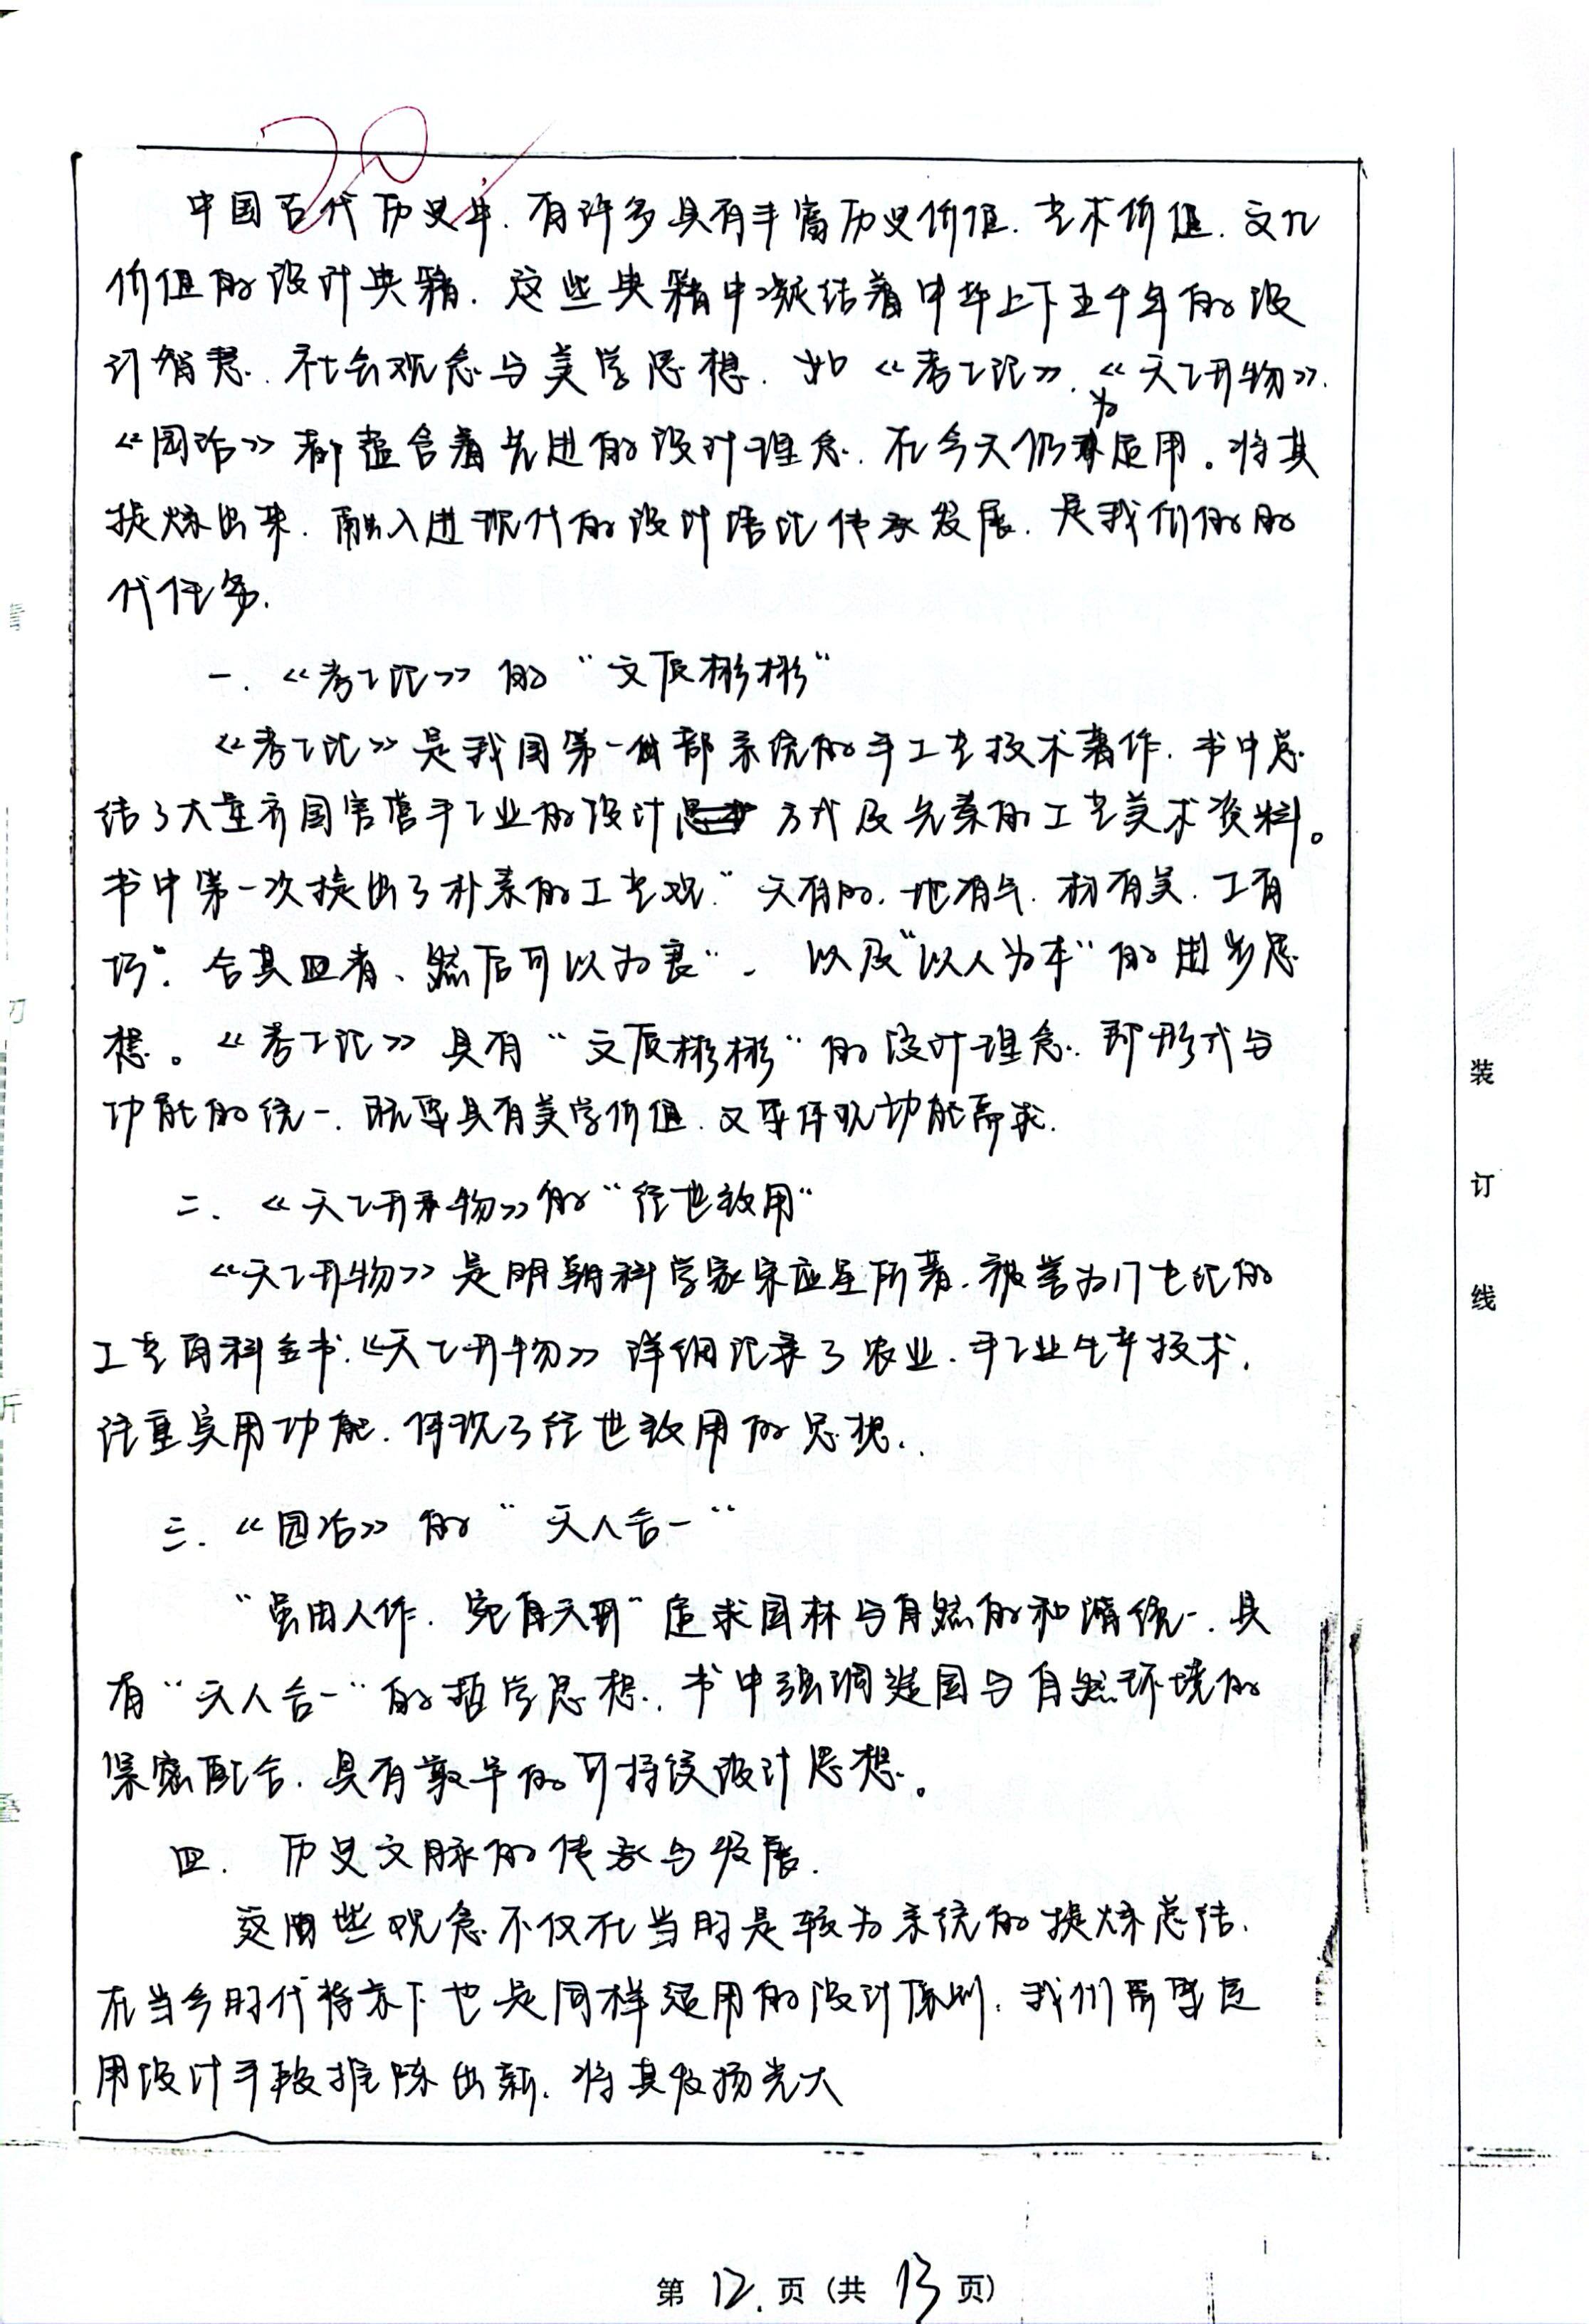 20
中国古代历史中,有许多具有丰富历史价值、艺术价值、文化
价值的设计典籍,这些典籍中凝结着中华上下五千年的设
计智慧、社会观念与美学思想,如《考工记》、《天工开物》、
《园冶》都蕴含着先进的设计理念,在今天仍为适用。将其
提炼出来,融入进现代的设计语汇传承发展,是我们的时
代任务.
一、《考工记》的“文质彬彬”
《考工记》是我国第一部系统的手工艺技术著作,书中总
结了大量齐国官营手工业的设计方式及先秦的工艺美术资料。
书中第一次提出了朴素的工艺观“天有时、地有气、材有美、工有
巧”。合其四者、然后可以为良”。以及“以人为本”的进步思
想。《考工记》具有“文质彬彬”的设计理念,即形式与
功能的统一,既要具有美学价值,又要体现功能需求.
二、《天工开物》的“经世致用”
《天工开物》是明朝科学家宋应星所著,被誉为17世纪的
工艺百科全书,《天工开物》详细记录了农业、手工业生产技术,
注重实用功能,体现了经世致用的思想.
三、《园冶》的“天人合一”
“虽由人作,宛自天开”追求园林与自然的和谐统一,具
有“天人合一”的哲学思想,书中强调造园与自然环境的
紧密配合,具有最早的可持续设计思想。
四、历史文脉的传承与发展.
这些观念不仅在当时是较为系统的提炼总结,
在当今时代背景下也是同样适用的设计原则,我们需要运
用设计手段推陈出新,将其发扬光大
装
订
线
第12页(共13页)